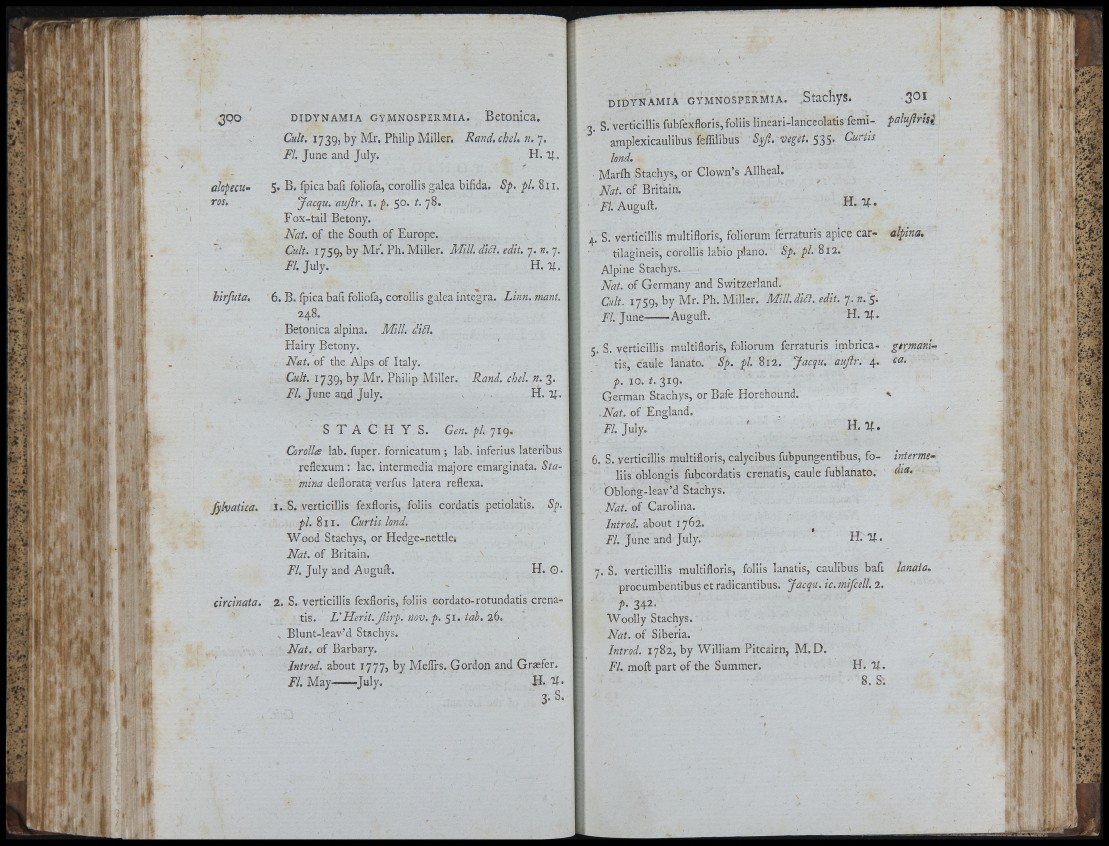 300 DIDYNAMIA GYMNOSPERMIA. Betonica.
Cult. 1739, by Mr. Philip Miller. Rand. chel. n. 7.
Fl. June and July. H. ♃.
alopecu- 5. B. ſpica baſi folioſa, corollis galea bifida. Sp. pl. 811.
ros. Jacqu. auſtr. 1. p. 50. t. 78.
Fox-tail Betony.
Nat. of the South of Europe.
Cult. 1759, by Mr. Ph. Miller. Mill. dict. edit. 7. n. 7.
Fl. July. H. ♃.
hirſuta. 6. B. ſpica baſi folioſa, corollis galea integra. Linn. mant.
248.
Betonica alpina. Mill. dict.
Hairy Betony.
Nat. of the Alps of Italy.
Cult. 1739, by Mr. Philip Miller. Rand. chel. n. 3.
Fl. June and July. H. ♃.
STACHYS. Gen. pl. 719.
Corollæ lab. ſuper. fornicatum; lab. inferius lateribus
reflexum: lac. intermedia majore emarginata. Sta-
mina deflorata verſus latera reflexa.
ſylvatica. 1. S. verticillis ſexfloris, foliis cordatis petiolatis. Sp.
pl. 811. Curtis lond.
Wood Stachys, or Hedge-nettle.
Nat. of Britain.
Fl. July and Auguſt. H. ☉.
circinata. 2. S. verticillis ſexfloris, foliis cordato-rotundatis crena-
tis. L'Herit. ſtirp. nov. p. 51. tab. 26.
Blunt-leav'd Stachys.
Nat. of Barbary.
Introd. about 1777, by Meſſrs. Gordon and Græfer.
Fl. May——July. H. ♃.
3. S.
DIDYNAMIA GYMNOSPERMIA. Stachys. 301
3. S. verticillis ſubſexfloris, foliis lineari-lanceolatis ſemi- paluſtris.
amplexicaulibus ſeſſilibus Syſt. veget. 535. Curtis
lond.
Marſh Stachys, or Clown's Allheal.
Nat. of Britain.
Fl. Auguſt. H. ♃.
4. S. verticillis multifloris, foliorum ſerraturis apice car- alpina.
tilagineis, corollis labio plano. Sp. pl. 812.
Alpine Stachys.
Nat. of Germany and Switzerland.
Cult. 1759, by Mr. Ph. Miller. Mill. dict. edit. 7. n. 5.
Fl. June——Auguſt. H. ♃.
5. S. verticillis multifloris, foliorum ſerraturis imbrica- germani-
tis, caule lanato. Sp. pl. 812. Jacqu. auſtr. 4. ca.
p. 10. t. 319.
German Stachys, or Baſe Horehound.
Nat. of England.
Fl. July. H. ♃.
6. S. verticillis multifloris, calycibus ſubpungentibus, fo- interme-
liis oblongis ſubcordatis crenatis, caule ſublanato. dia.
Oblong-leav'd Stachys.
Nat. of Carolina.
Introd. about 1762.
Fl. June and July. H. ♃.
7. S. verticillis multifloris, foliis lanatis, caulibus baſi lanata.
procumbentibus et radicantibus. Jacqu. ic. miſcell. 2.
p. 342.
Woolly Stachys.
Nat. of Siberia.
Introd. 1782, by William Pitcairn, M.D.
Fl. moſt part of the Summer. H. ♃.
8. S.